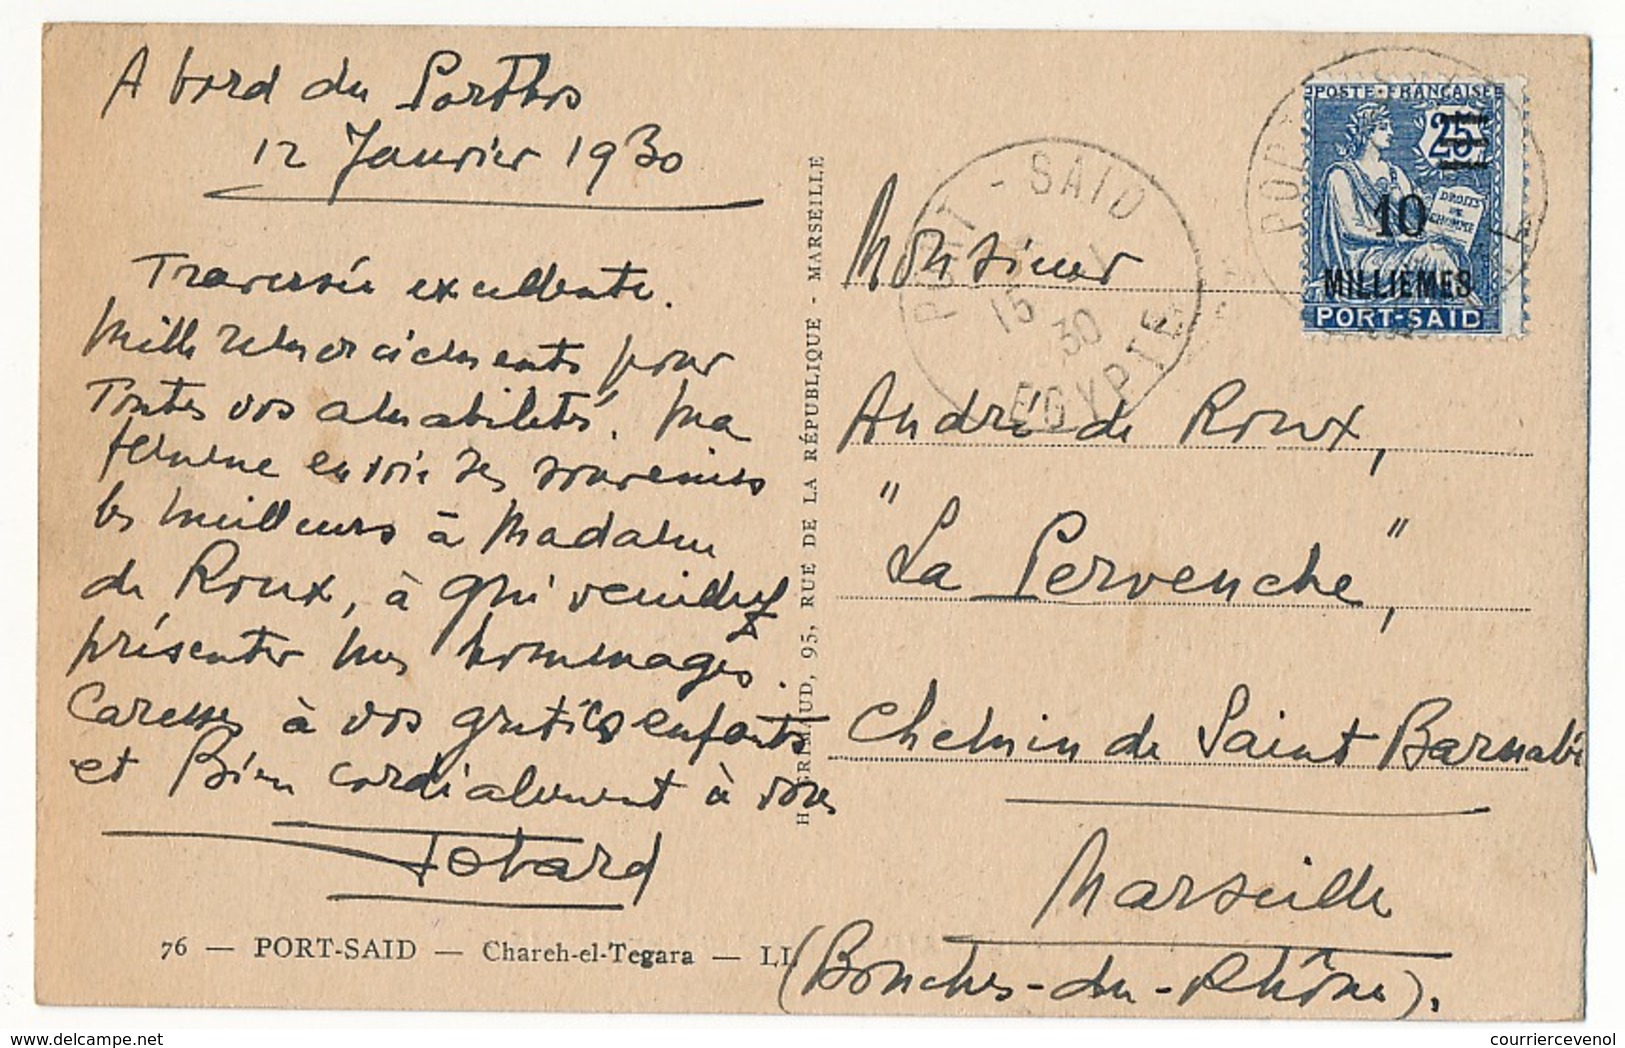 A bord du Porthos
12 Janvier 1930
Traversée excellente.
Mille remerciements pour
Toutes vos amabilités. Ma
femme envoie ses souvenirs
les meilleurs à Madame
de Roux, à qui veuillez
présenter mes hommages.
Caresses à vos gentils enfants
et Bien cordialement à vous
76 — PORT-SAID — Chareh-el-Tegara — LL
H. GRIMAUD, 95, RUE DE LA RÉPUBLIQUE - MARSEILLE
PORT - SAID
15 1
30
EGYPTE
POSTE FRANÇAISE
25
DROITS
DE
L'HOMME
10
MILLIÈMES
PORT-SAID
Monsieur
André de Roux,
"La Pervenche",
Chemin de Saint Barnabé
Marseille
(Bouches-du-Rhône).
www.courriercevenol.com